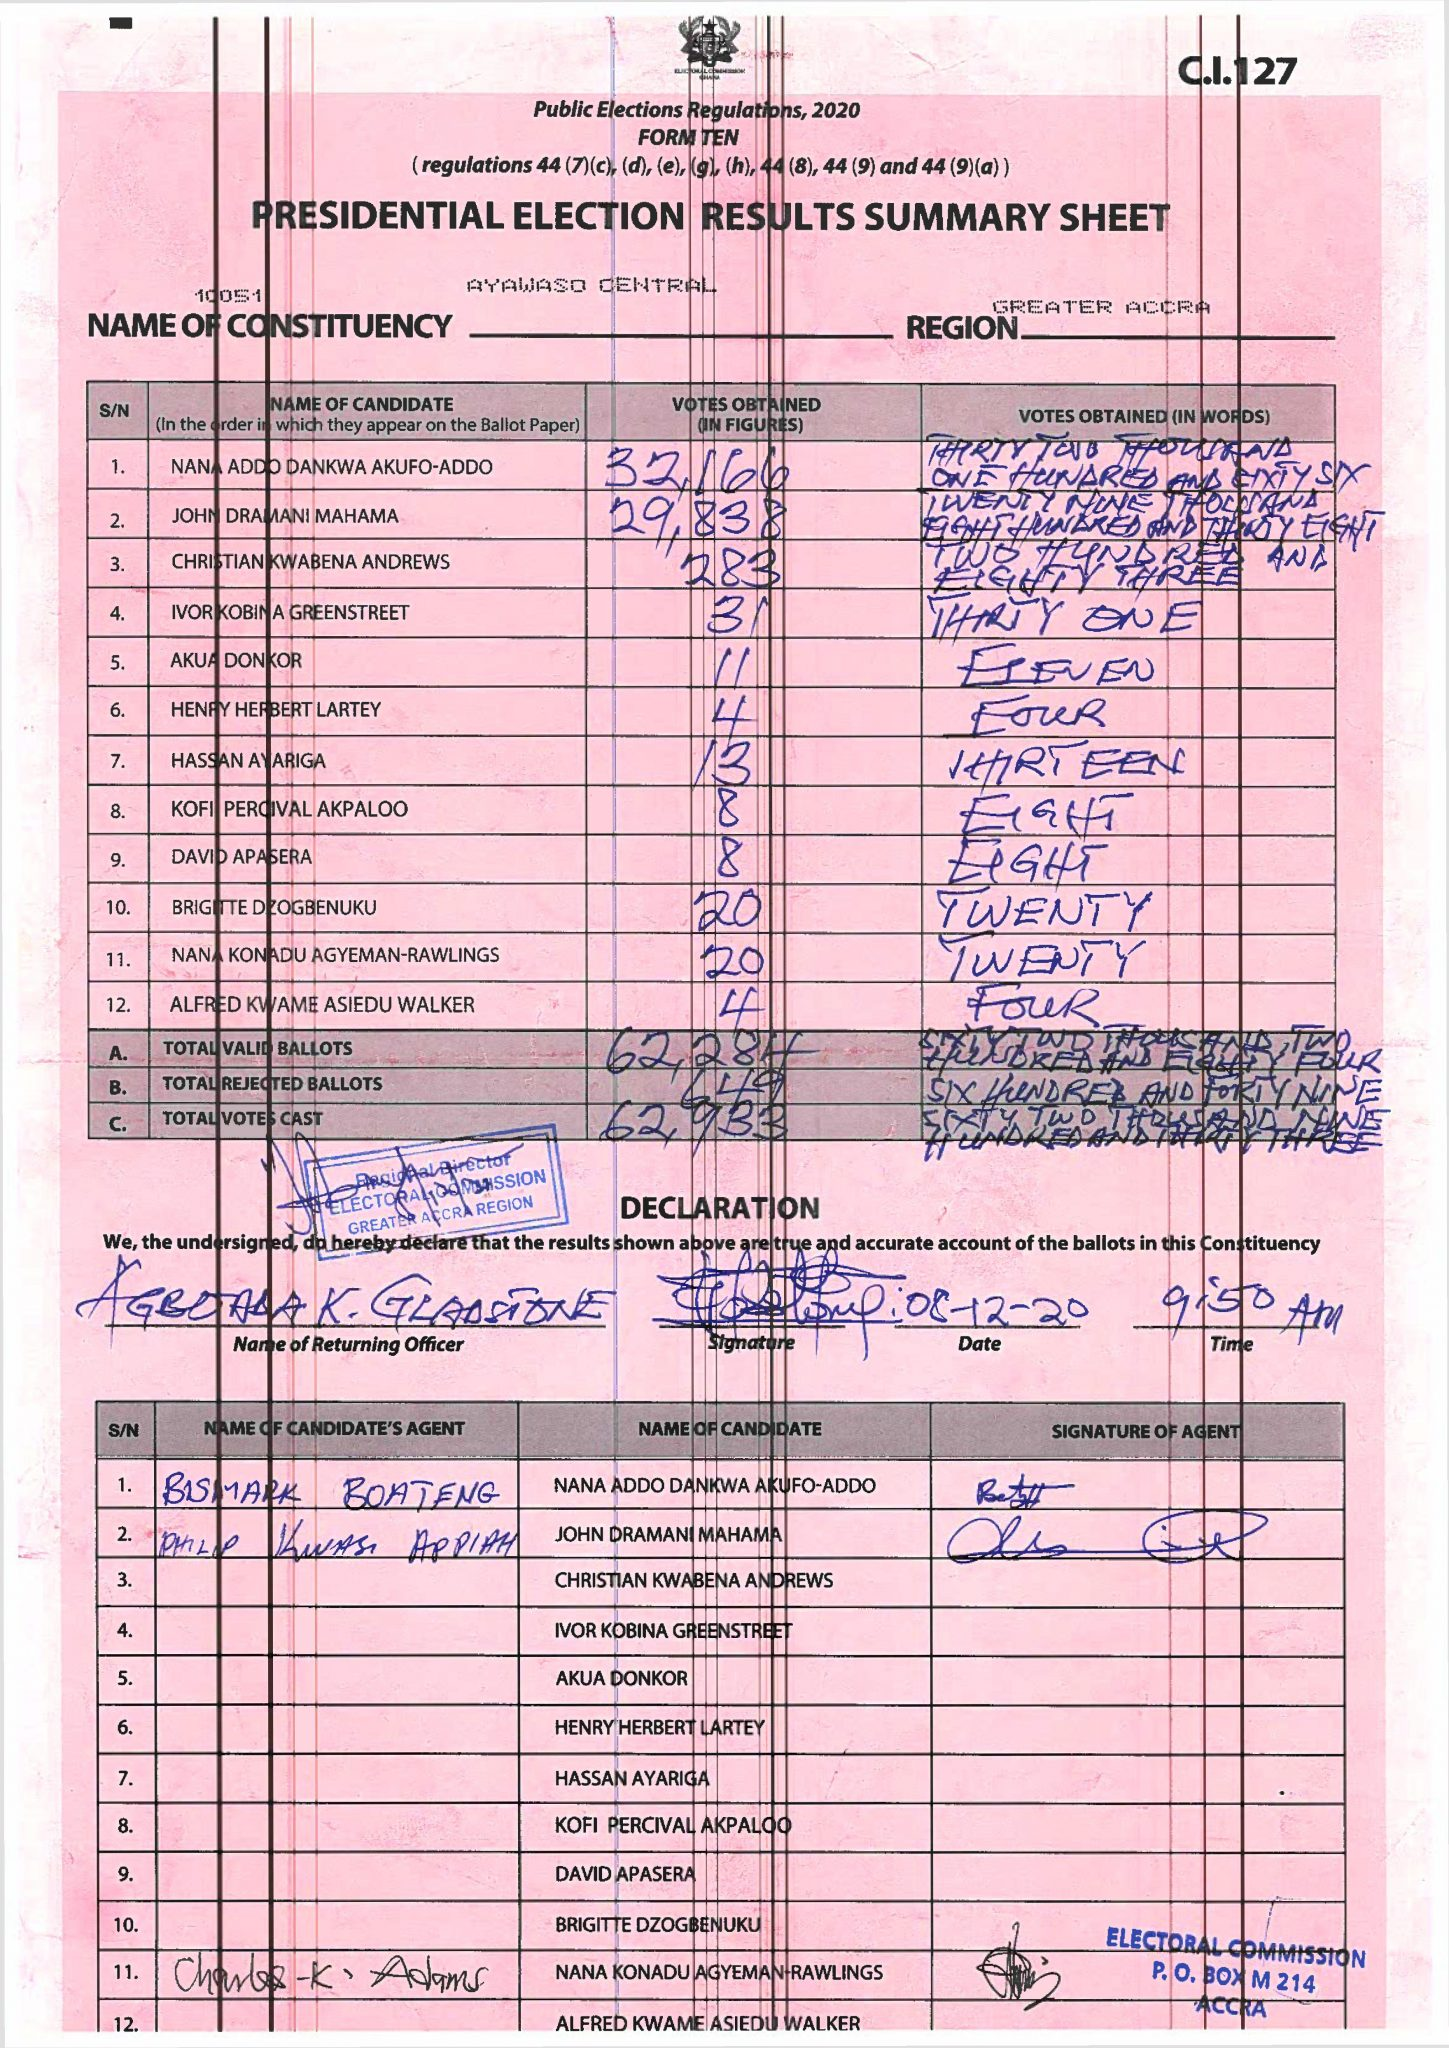 ELECTORAL COMMISSION
GHANA
C.I.127
Public Elections Regulations, 2020
FORM TEN
( regulations 44 (7)(c), (d), (e), (g), (h), 44 (8), 44 (9) and 44 (9)(a) )
PRESIDENTIAL ELECTION RESULTS SUMMARY SHEET
10051 AYAWASO CENTRAL GREATER ACCRA
NAME OF CONSTITUENCY REGION
S/N NAME OF CANDIDATE (In the order in which they appear on the Ballot Paper) VOTES OBTAINED (IN FIGURES) VOTES OBTAINED (IN WORDS)
1. NANA ADDO DANKWA AKUFO-ADDO 32,166 THIRTY TWO THOUSAND ONE HUNDRED AND SIXTY SIX
2. JOHN DRAMANI MAHAMA 29,838 TWENTY NINE THOUSAND EIGHT HUNDRED AND THIRTY EIGHT
3. CHRISTIAN KWABENA ANDREWS 283 TWO HUNDRED AND EIGHTY THREE
4. IVOR KOBINA GREENSTREET 31 THIRTY ONE
5. AKUA DONKOR 11 ELEVEN
6. HENRY HERBERT LARTEY 4 FOUR
7. HASSAN AYARIGA 13 THIRTEEN
8. KOFI PERCIVAL AKPALOO 8 EIGHT
9. DAVID APASERA 8 EIGHT
10. BRIGITTE DZOGBENUKU 20 TWENTY
11. NANA KONADU AGYEMAN-RAWLINGS 20 TWENTY
12. ALFRED KWAME ASIEDU WALKER 4 FOUR
A. TOTAL VALID BALLOTS 62,284 SIXTY TWO THOUSAND, TWO HUNDRED AND EIGHTY FOUR
B. TOTAL REJECTED BALLOTS 649 SIX HUNDRED AND FORTY NINE
C. TOTAL VOTES CAST 62,933 SIXTY TWO THOUSAND NINE HUNDRED AND THIRTY THREE
Regional Director
ELECTORAL COMMISSION
GREATER ACCRA REGION
DECLARATION
We, the undersigned, do hereby declare that the results shown above are true and accurate account of the ballots in this Constituency
K. GLADSTONE 08-12-20 9:50 AM
Name of Returning Officer Signature Date Time
S/N NAME OF CANDIDATE'S AGENT NAME OF CANDIDATE SIGNATURE OF AGENT
1. BISMARK BOATENG NANA ADDO DANKWA AKUFO-ADDO
2. PHILIP KWASI APPIAH JOHN DRAMANI MAHAMA
3. CHRISTIAN KWABENA ANDREWS
4. IVOR KOBINA GREENSTREET
5. AKUA DONKOR
6. HENRY HERBERT LARTEY
7. HASSAN AYARIGA
8. KOFI PERCIVAL AKPALOO
9. DAVID APASERA
10. BRIGITTE DZOGBENUKU
11. Charles K. Adams NANA KONADU AGYEMAN-RAWLINGS
12. ALFRED KWAME ASIEDU WALKER
ELECTORAL COMMISSION
P. O. BOX M 214
ACCRA